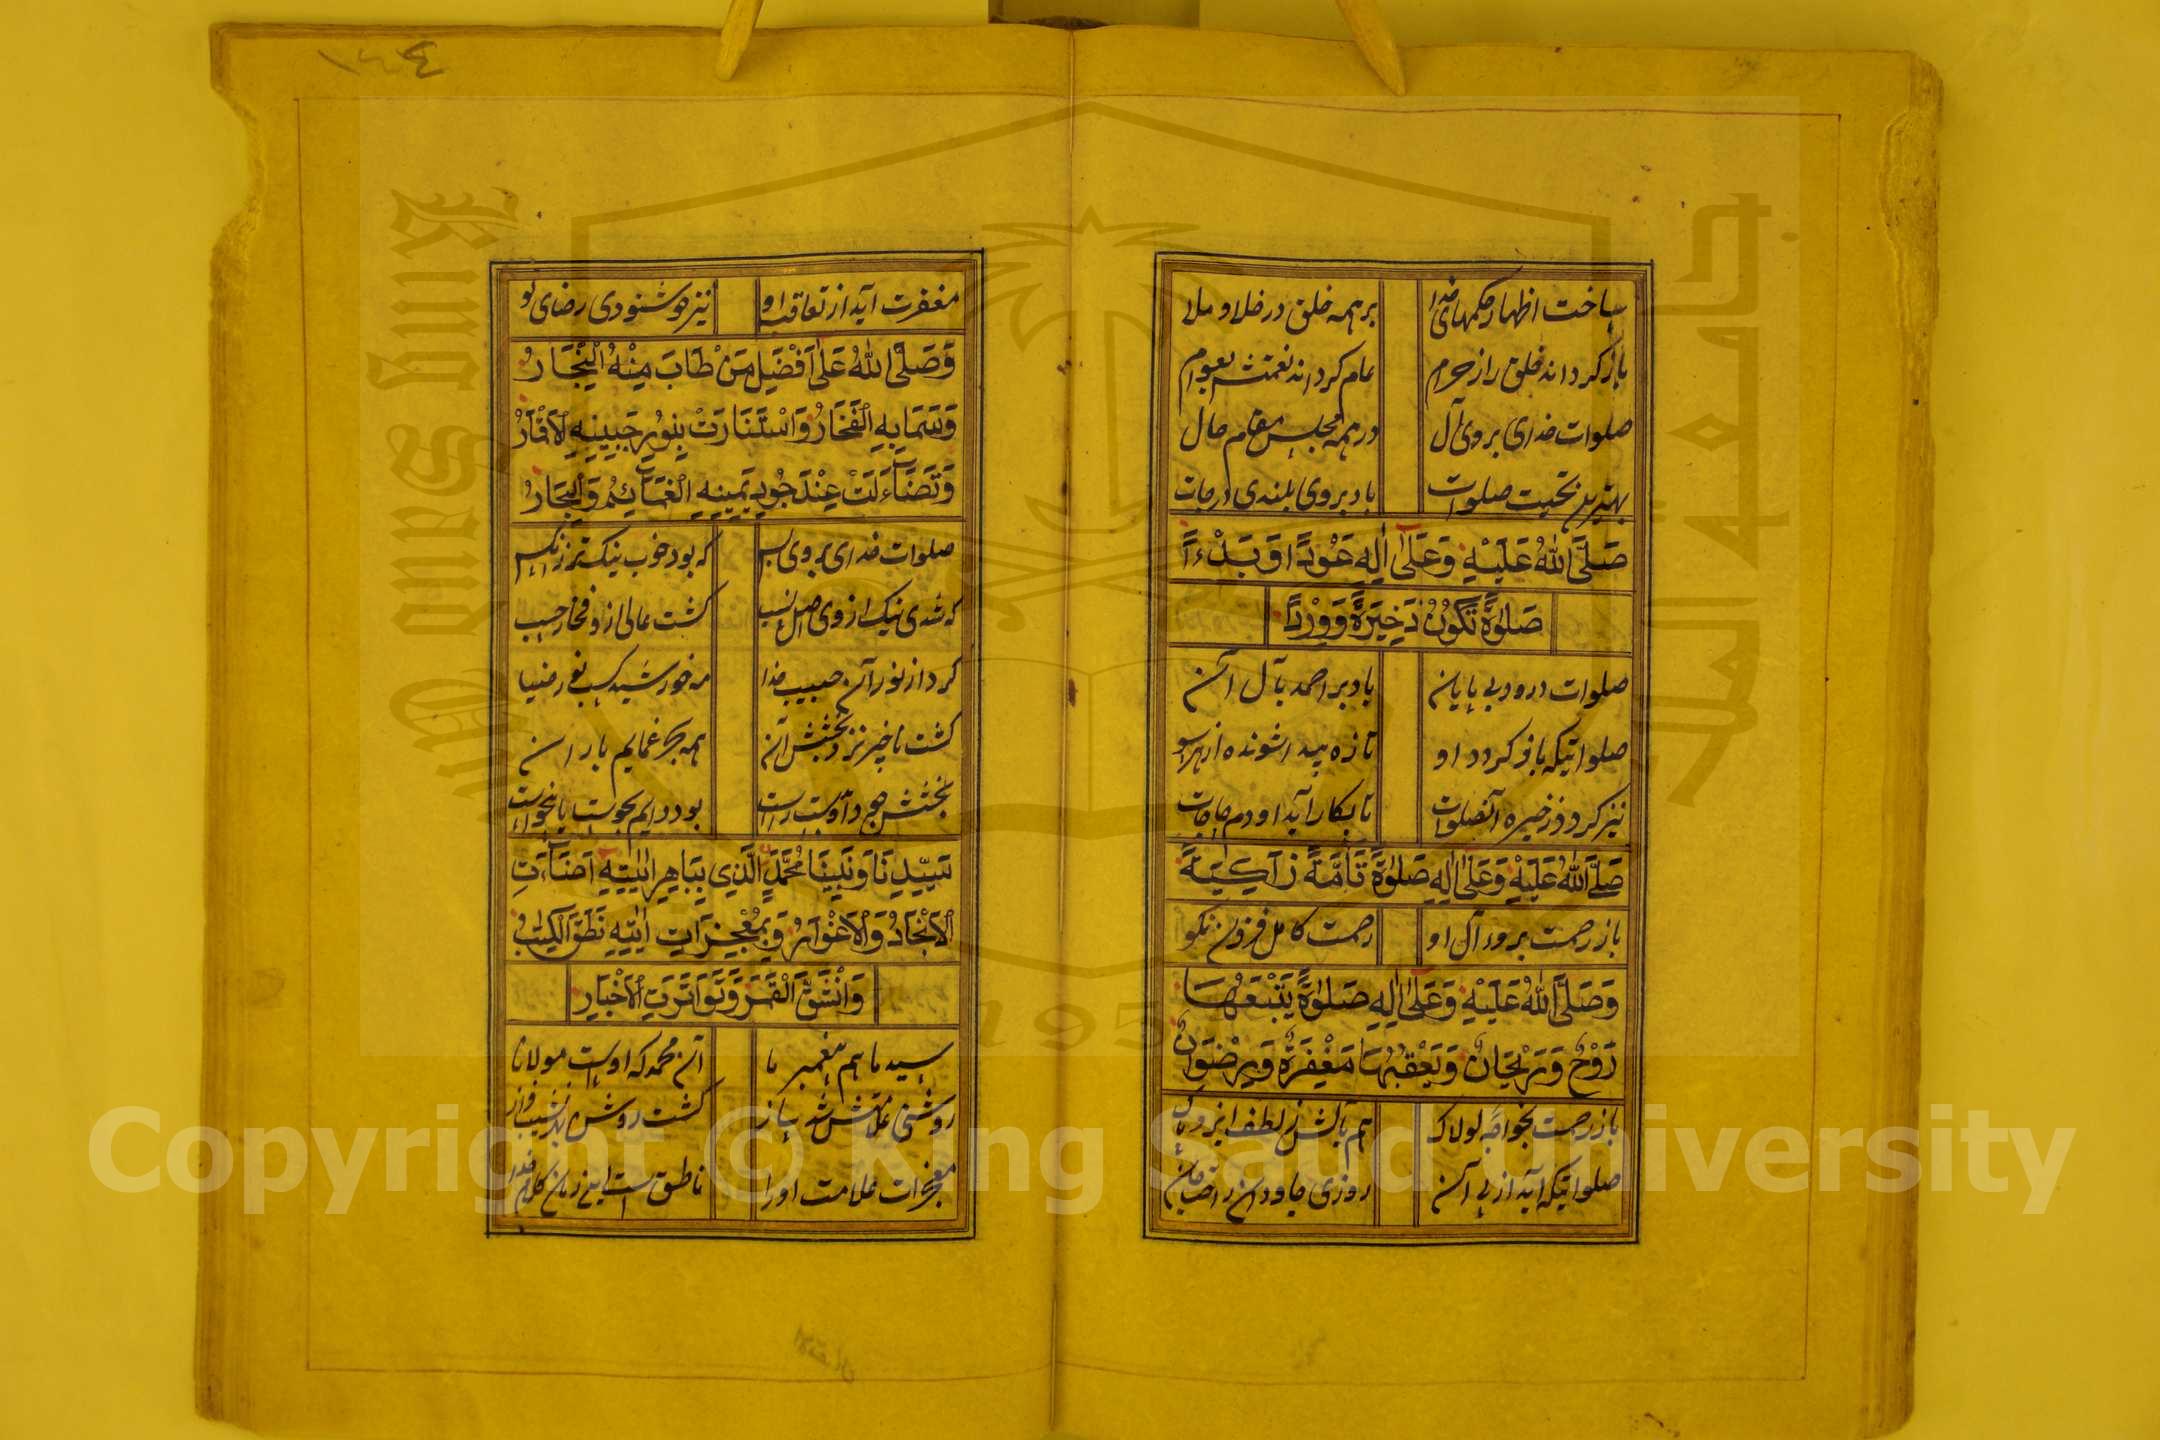 ساخت اظهار حکمهای خدا برهمه خلق در خلا و ملا
بازگرداند خلق را ز حرام عام کرد اند نعمتش بعوام
صلوات خدای بروی و آل درهمه مجلس مقام حال
بهترین تحیت صلوات باد بروی بلندی درجات
صَلَّى اللهُ عَلَيْهِ وَعَلَى اٰلِهِ عَوْدًا وَبَدْءًا
صَلوٰةً تَكُوْنُ ذَخِيْرَةً وَوِرْدًا
صلوات درود بی پایان باد بر احمد بآل آن
صلواتیکه باز کردد او تازه پیدا شونده از هر سو
نیز کردد ذخیره آنصلوات تا بکار آید او دم حاجات
صَلَّى اللهُ عَلَيْهِ وَعَلَى اٰلِهِ صَلوٰةً تَآمَّةً زَاكِيَةً
باز رحمت برو و آل او رحمت کامل فزون نکو
وَصَلَّى اللهُ عَلَيْهِ وَعَلَى اٰلِهِ صَلوٰةً يَتْبَعُهَا
رَوْحٌ وَرَيْحَانٌ وَيَعْقُبُهَا مَغْفِرَةٌ وَرِضْوَانٌ
باز رحمت بخواجه لولاک هم بآلش ز لطف ایزد پاک
صلواتیکه آید از پی آن روزی جاودان راحت جان
١٤٤
مغفرت آید از تعاقب او نیز خوشنودی رضای نو
وَصَلَّى اللهُ عَلَى اَفْضَلِ مَنْ طَابَ مِنْهُ الْنِجَارُ
وَسَمَا بِهِ الْفَخَارُ وَاسْتَنَارَتْ بِنُوْرِ جَبِيْنِهِ الْاَقْمَارُ
وَتَضَآءَلَتْ عِنْدَ جُوْدِ يَمِيْنِهِ الْغَمَائِمُ وَالْبِحَارُ
صلوات خدای بروی بس که بود خوب نیکتر ز همه کس
که شدی نیک از وی اصل نسب گشت عالی ازو فخار حسب
گردد از نور آن حبیب خدا مه خورشید کسب نور ضیا
گشت ناچیز نزد بخشش آن همه بحر غمایم باران
بخشش جود او بدست راست بود دایم بجوست یا بنخواست
سَيِّدِنَا وَنَبِيِّنَا مُحَمَّدٍ الَّذِي بِبَاهِرِ اٰيَاتِهِ اَضَآءَتِ
الْاَنْجَادُ وَالْاَغْوَارُ وَبِمُعْجِزَاتِ اٰيَاتِهِ نَطَقَ الْكِتَابُ
وَانْشَقَّ الْقَمَرُ وَتَوَاتَرَتِ الْاَخْبَارُ
سید ما هم پیغمبر ما آن محمد که اوست مولانا
روشنی علامتش شد باز گشت روشن بدو نشیب و فراز
معجزات علامت او را ناطق است این زمان کلام خدا
King Saud University
جامعة الملك سعود
1957
Copyright © King Saud University